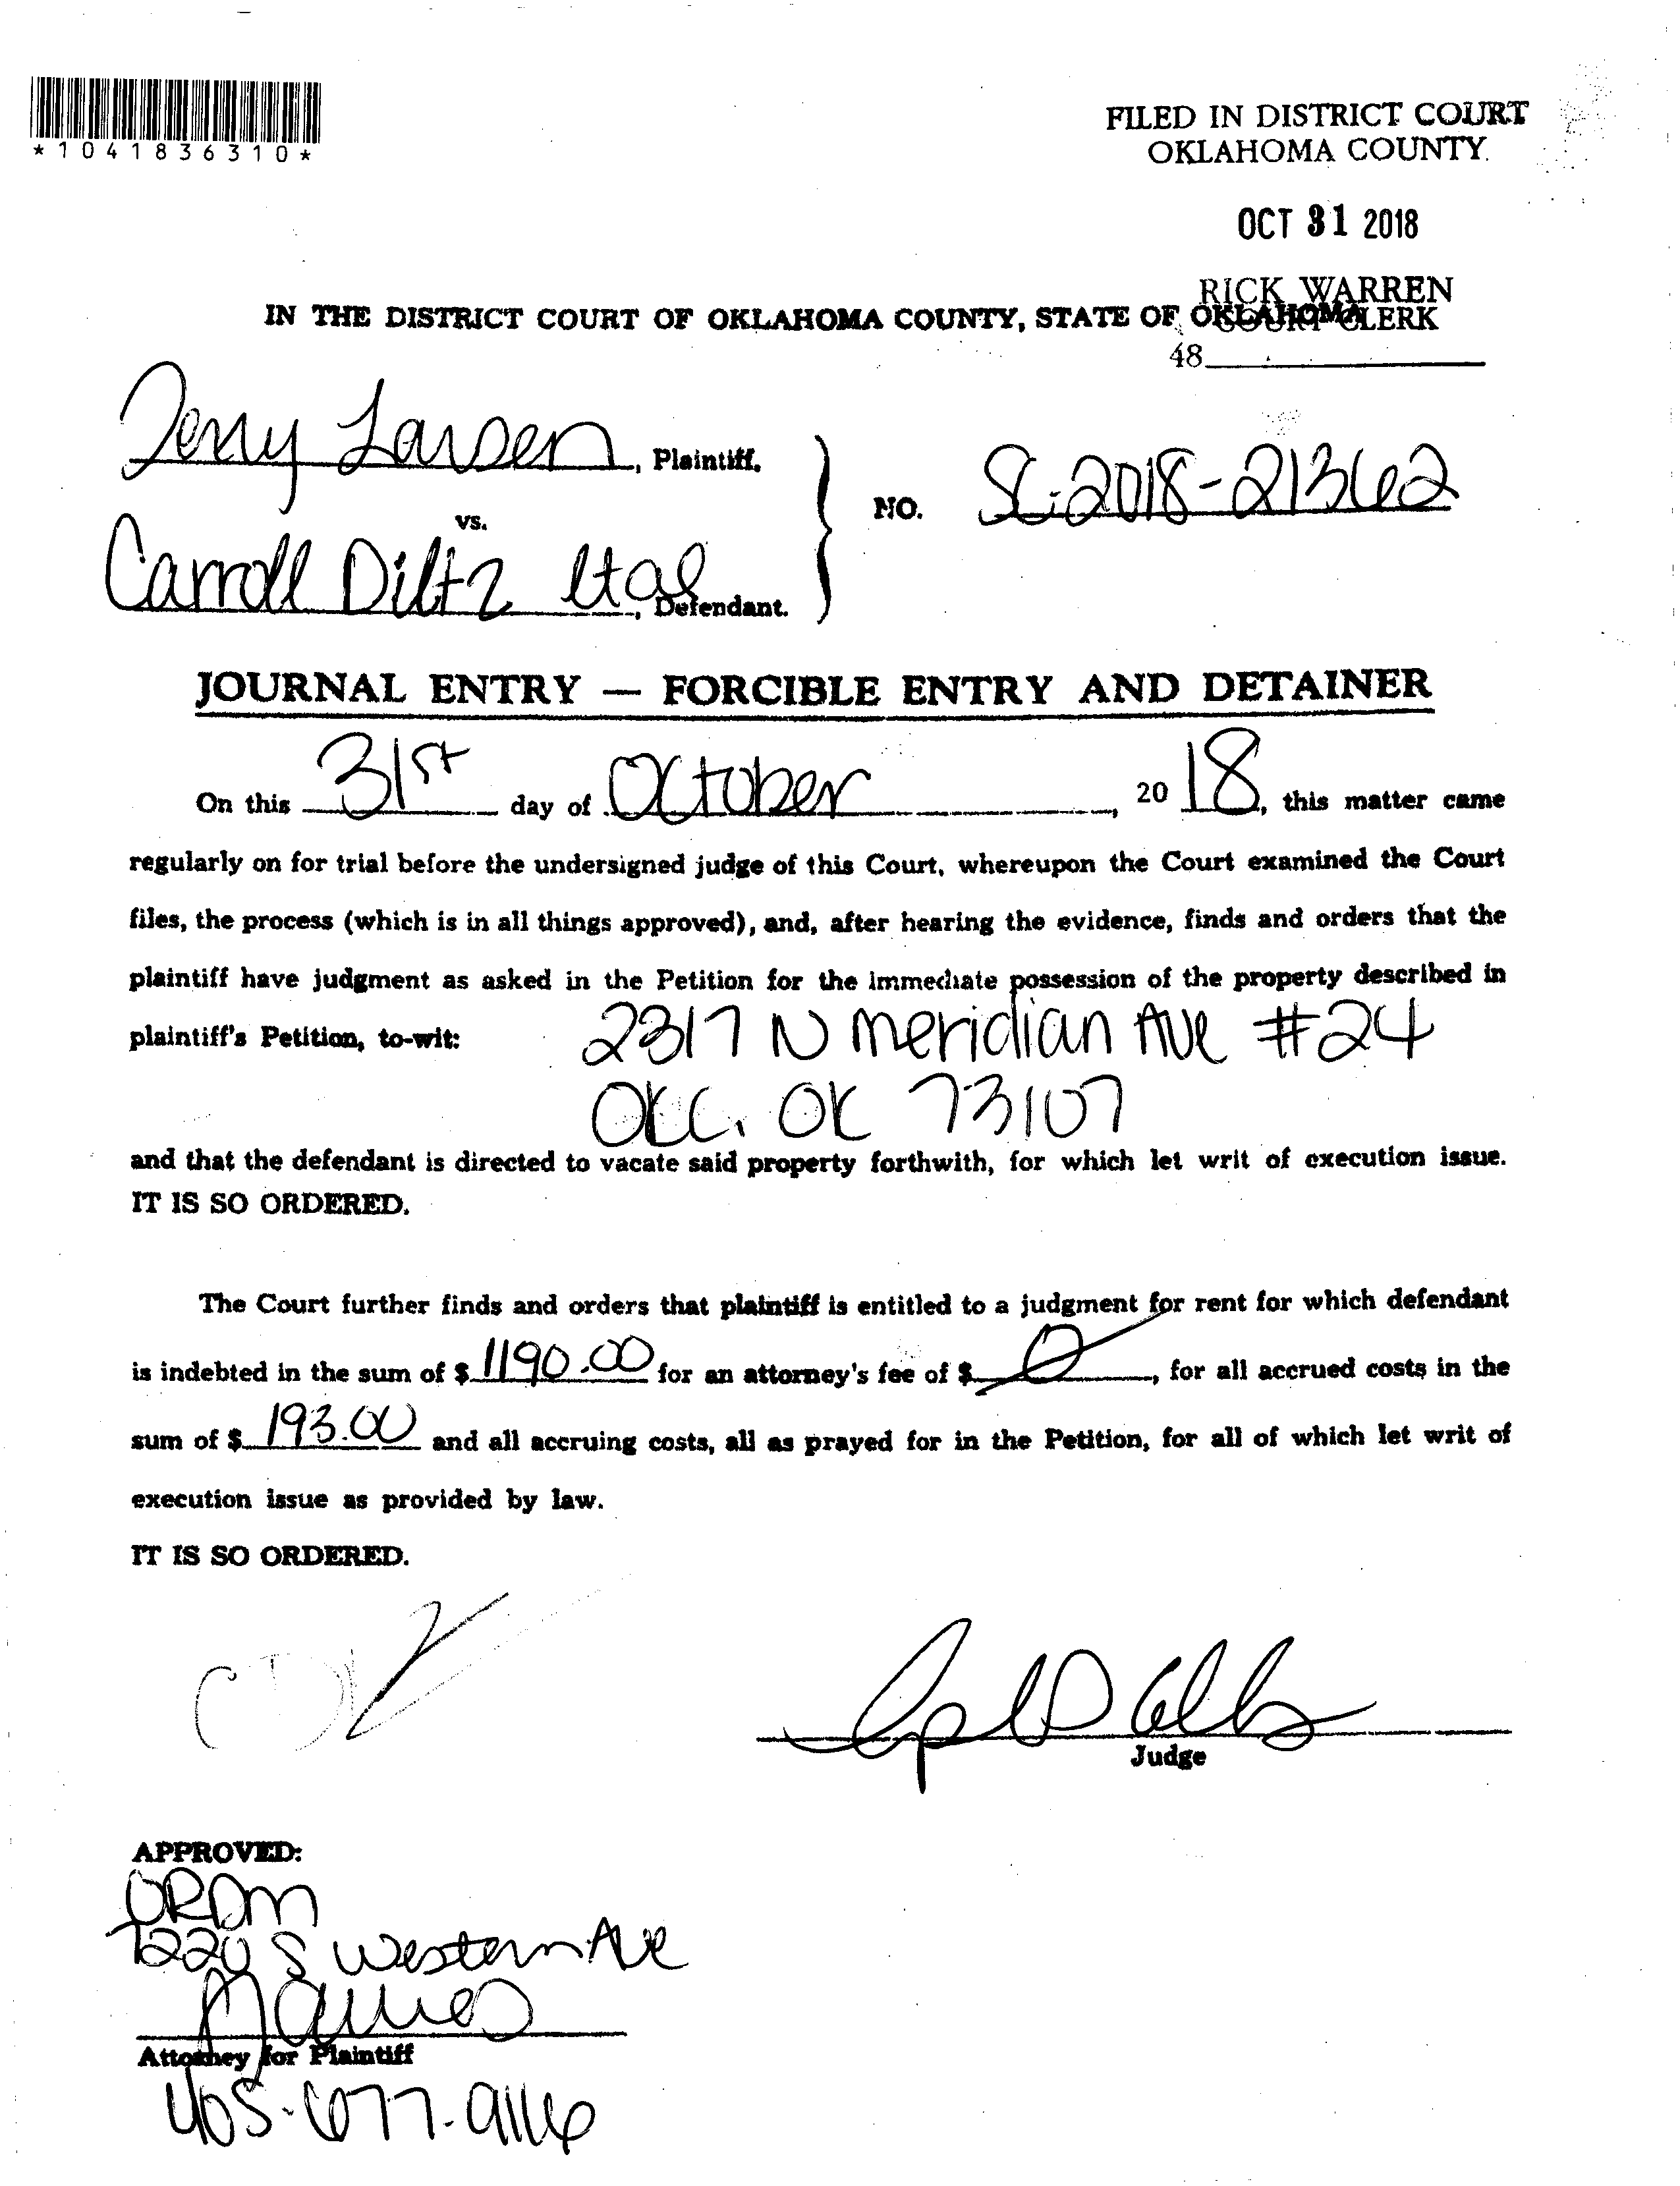 *1041836310*
FILED IN DISTRICT COURT
OKLAHOMA COUNTY
OCT 31 2018
RICK WARREN
COURT CLERK
48
IN THE DISTRICT COURT OF OKLAHOMA COUNTY, STATE OF OKLAHOMA
Jerry Larsen, Plaintiff,
vs.
NO. SC-2018-21362
Carroll Diltz etal, Defendant.
JOURNAL ENTRY — FORCIBLE ENTRY AND DETAINER
On this 31st day of October, 20 18, this matter came
regularly on for trial before the undersigned judge of this Court, whereupon the Court examined the Court
files, the process (which is in all things approved), and, after hearing the evidence, finds and orders that the
plaintiff have judgment as asked in the Petition for the immediate possession of the property described in
plaintiff's Petition, to-wit: 2317 N Meridian Ave #24
OKC, OK 73107
and that the defendant is directed to vacate said property forthwith, for which let writ of execution issue.
IT IS SO ORDERED.
The Court further finds and orders that plaintiff is entitled to a judgment for rent for which defendant
is indebted in the sum of $ 1190.00 for an attorney's fee of $ 0, for all accrued costs in the
sum of $ 193.00 and all accruing costs, all as prayed for in the Petition, for all of which let writ of
execution issue as provided by law.
IT IS SO ORDERED.
Judge
APPROVED:
ORDM
7220 S Western Ave
Attorney for Plaintiff
405-677-9116